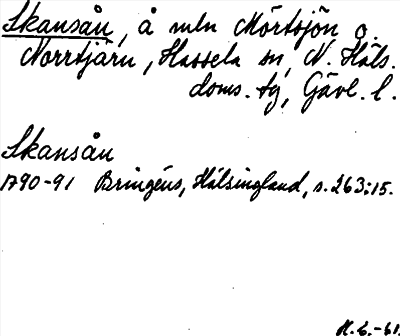 Skansån, å mln Mörtsjön o.
Norrtjärn, Hassela sn, N. Häls.
doms. tg, Gävl. l.
Skansån
1790-91 Bringéus, Hälsingland, s. 263:15.
H.E.-61.